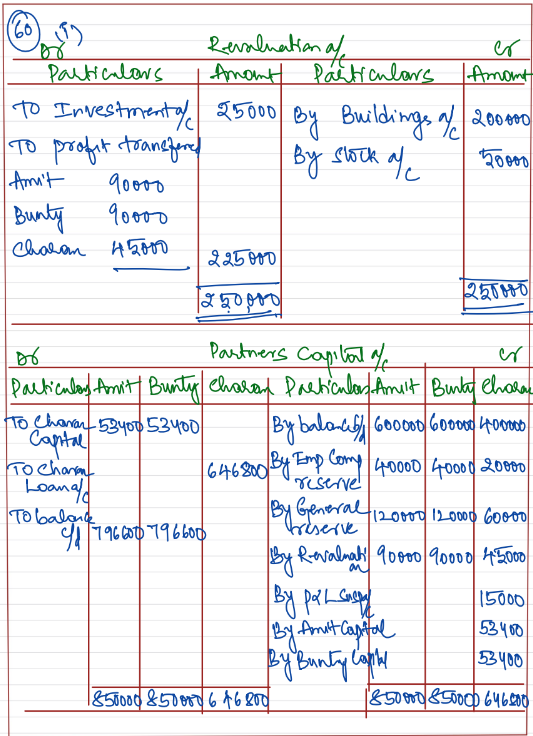 60 (i)
Dr Revaluation a/c Cr
Particulars Amount Particulars Amount
To Investment a/c 25000 By Buildings a/c 200000
To profit transfered By stock a/c 50000
Amit 90000
Bunty 90000
Charan 45000 225000
250,000 250000
Dr Partners Capital a/c Cr
Particulars Amit Bunty Charan Particulars Amit Bunty Charan
To Charan Capital 53400 53400 By balance b/d 600000 600000 400000
To Charan Loan a/c 646800 By Emp Comp reserve 40000 40000 20000
To balance c/d 796600 796600 By General reserve 120000 120000 60000
By Revaluation 90000 90000 45000
By P&L Susp a/c 15000
By Amit Capital 53400
By Bunty Capital 53400
850000 850000 646800 850000 85000 646800